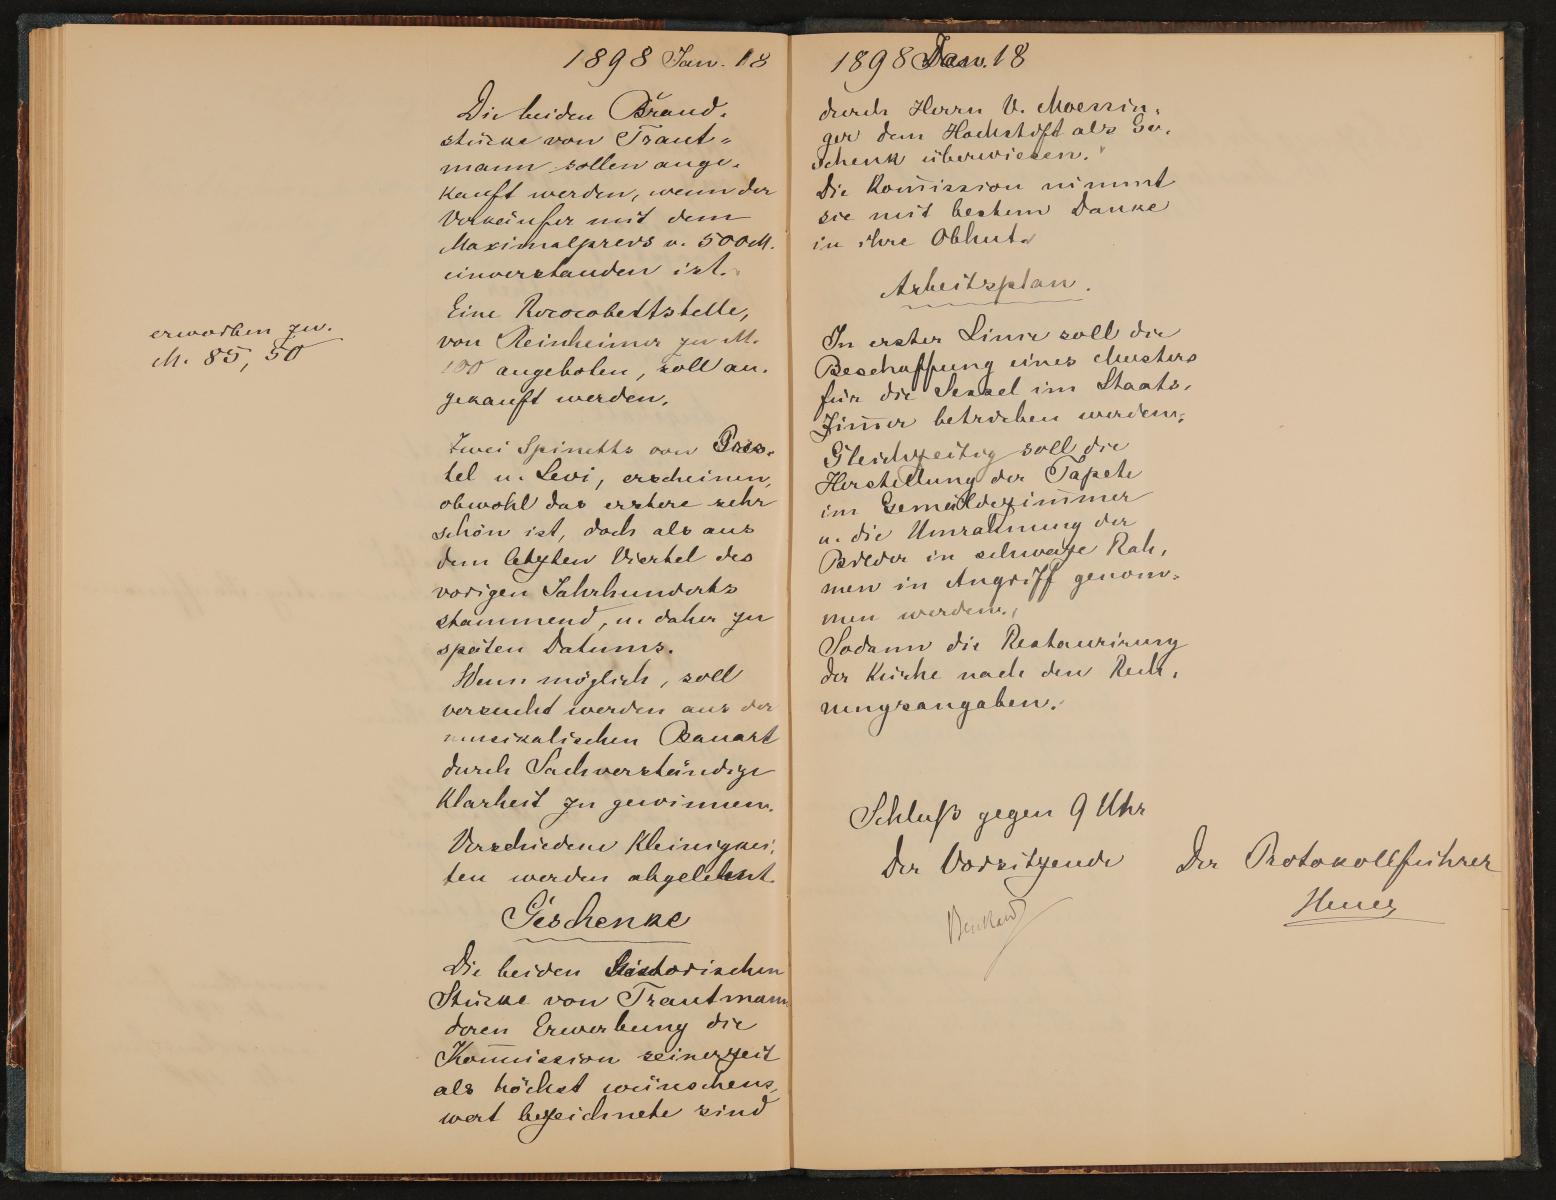 1898 Jan. 18
Die beiden Brand-
stücke von Traut-
mann sollen ange-
kauft werden, wenn der
Verkäufer mit dem
Maximalpreis v. 500 M.
einverstanden ist.
Eine Rococobettstelle,
von Reinheimer zu M.
100 angeboten, soll an-
gekauft werden.
erworben zu
M. 85,50
Zwei Spinetts von Pres-
tel u. Levi, erscheinen,
obwohl das erstere sehr
schön ist, doch als aus
dem letzten Viertel des
vorigen Jahrhunderts
stammend, u. daher zu
späten Datums.
Wenn möglich, soll
versucht werden aus der
musikalischen Bauart
durch Sachverständige
Klarheit zu gewinnen.
Verschiedene Kleinigkei-
ten werden abgelehnt.
Geschenke
Die beiden historischen
Stücke von Trautmann
deren Erwerbung die
Kom̅ission seinerzeit
als höchst wünschens-
wert bezeichnete sind
1898 Jan. 18
durch Herrn V. Moessin-
ger dem Hochstift als Ge-
schenk überwiesen.
Die Kom̅ission nimmt
sie mit bestem Danke
in ihre Obhut.
Arbeitsplan.
In erster Linie soll die
Beschaffung eines Musters
für die Sessel im Staats-
Zim̅er betrieben werden.
Gleichzeitig soll die
Herstellung der Tapete
im Gemäldezimmer
u. die Umrahmung der
Bilder in schwarze Rah-
men in Angriff genom-
men werden.
Sodann die Restaurirung
der Küche nach den Rech-
nungsangaben.
Schluß gegen 9 Uhr
Der Vorsitzende
Der Protokollführer
Heuer